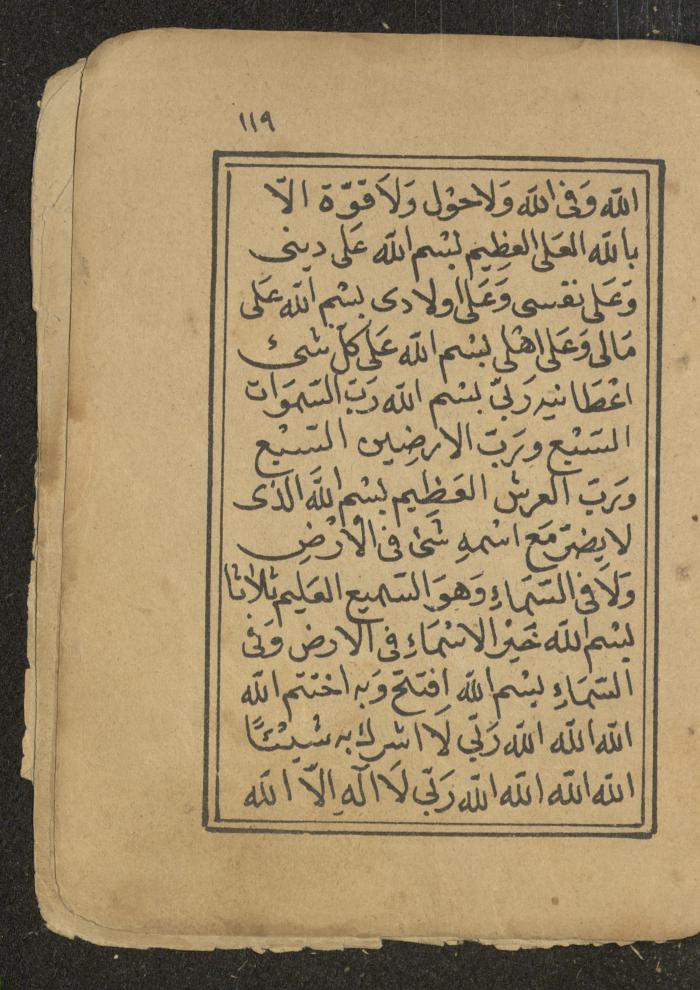 ١١٩
الله وَفى الله وَلا حَوْل وَلَا قوّة الّا
بالله العَلى العظِيم بسْم الله عَلى دينى
وَعَلى نفسى وَعَلى اولادى بسْم الله عَلى
مَالى وَعَلى اهْلى بسْم الله عَلى كلّ شىء
اعْطانيه رَبىّ بسْم الله رَبّ السّموَات
السَّبْع ورَبّ الارضِين السّبْع
ورَبّ العرش العَظِيم بسْم الله الذى
لا يضرّ مَع اسْمهِ شَىْ فى الْأرْضِ
وَلَا فى السّمَاءِ وَهوَ السّميع العَليم ثلَاثا
بسْم الله خَيْر الاسْمَاءِ فى الارض وَفى
السّمَاءِ بسْم الله افتتح وَبه اختتم الله
الله الله الله رَبّي لَا اشرك به شَيْئًا
الله الله الله الله رَبّي لَا الَه الّا الله